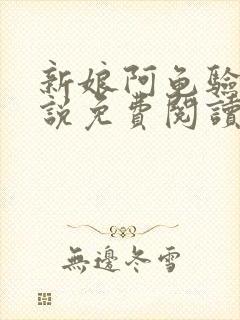 新娘阿兔驗
說免費閱讀
無邊冬雪